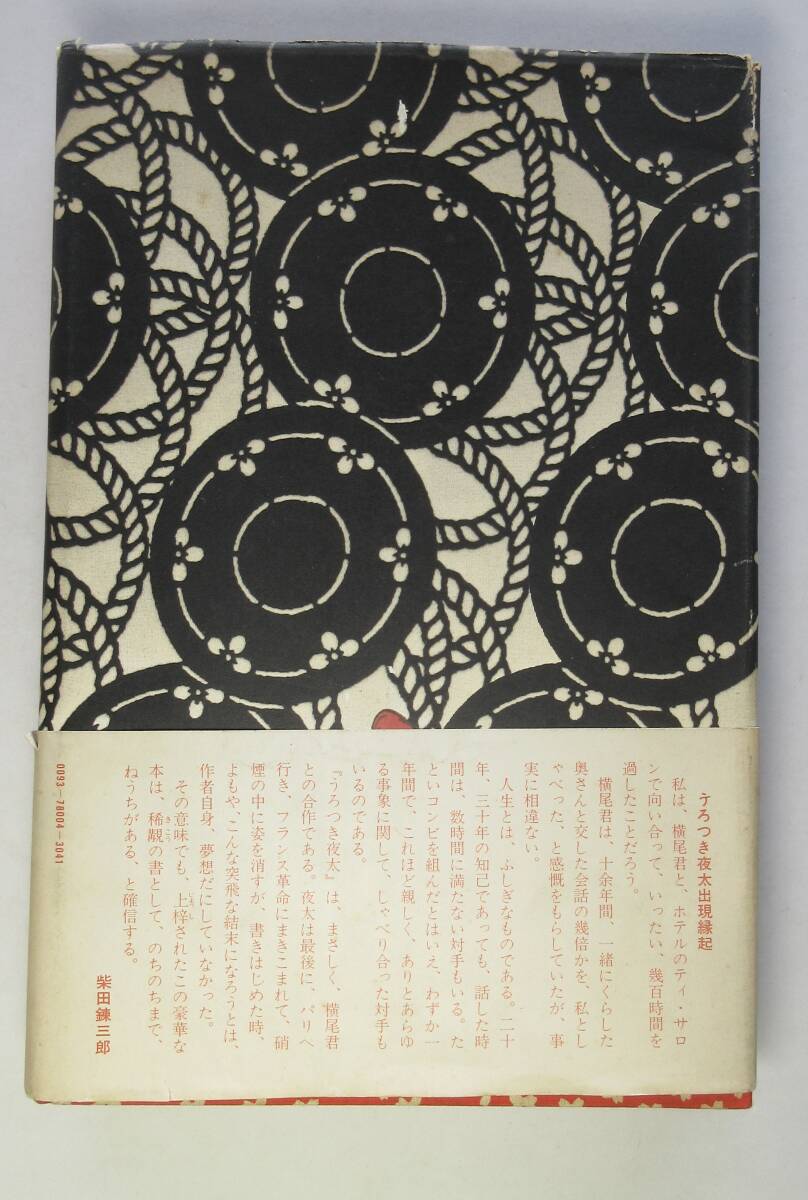 うろつき夜太出現縁起
私は、横尾君と、ホテルのティ・サロ
ンで向い合って、いったい、幾百時間を
過したことだろう。
横尾君は、十余年間、一緒にくらした
奥さんと交した会話の幾倍かを、私とし
ゃべった、と感慨をもらしていたが、事
実に相違ない。
人生とは、ふしぎなものである。二十
年、三十年の知己であっても、話した時
間は、数時間に満たない対手もいる。た
といコンビを組んだとはいえ、わずか一
年間で、これほど親しく、ありとあらゆ
る事象に関して、しゃべり合った対手も
いるのである。
『うろつき夜太』は、まさしく、横尾君
との合作である。夜太は最後に、パリへ
行き、フランス革命にまきこまれて、硝
煙の中に姿を消すが、書きはじめた時、
よもや、こんな突飛な結末になろうとは、
作者自身、夢想だにしていなかった。
その意味でも、上梓されたこの豪華な
本は、稀覯の書として、のちのちまで、
ねうちがある、と確信する。
柴田錬三郎
0093-78004-3041